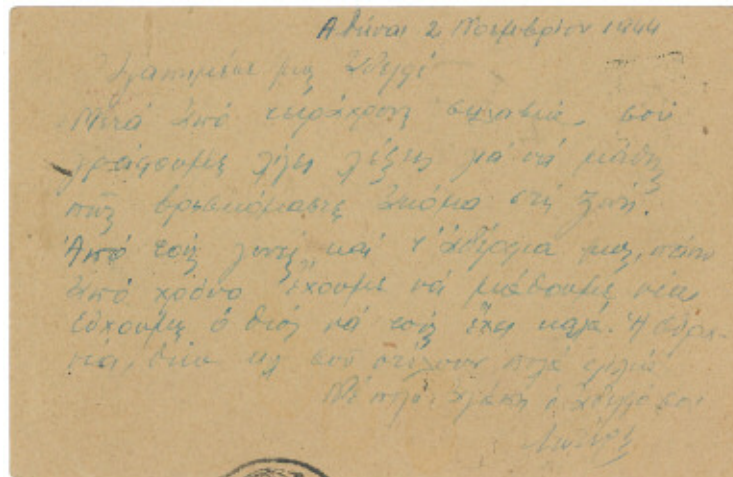 Αθήναι 2 Νοεμβρίου 1944
Αγαπημένε μας αδελφέ
Μετά από τετράχρονη σιωπή, σου
γράφουμε λίγες λέξεις για να μάθης
πως βρισκόμαστε ακόμα στη ζωή.
Από τους γονείς και τ' αδέρφια μας, πάνω
από χρόνο έχουμε να μάθουμε νέα
εύχουμε ο Θεός να τους έχει καλά. Η
σου στέλνουν πολλά φιλιά
Με πολλή αγάπη ο αδελφός σου